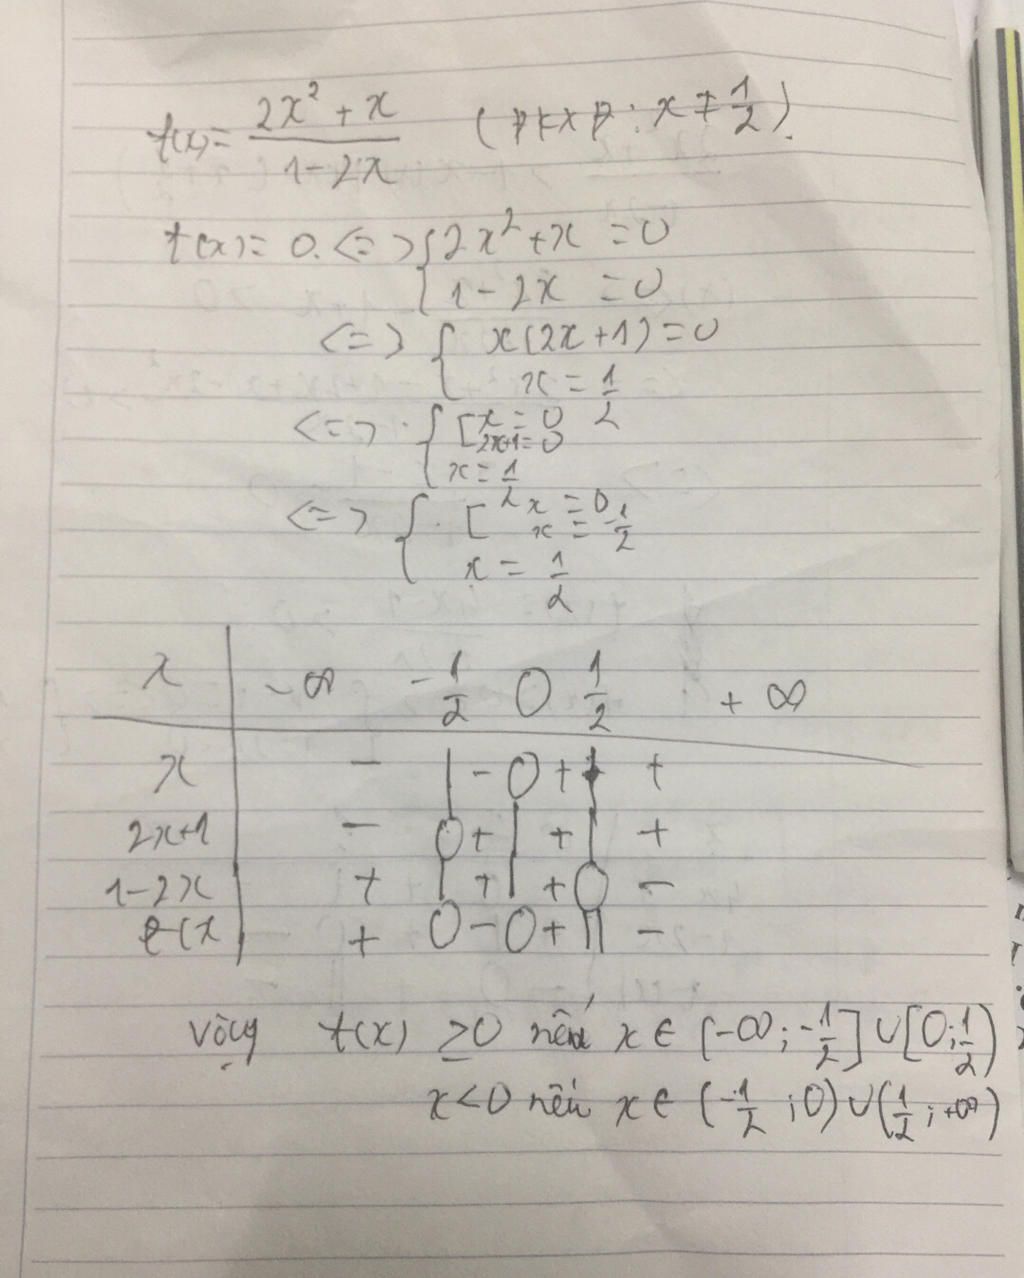 f(x) = \frac{2x^2 + x}{1 - 2x} ( : x ≠ \frac{1}{2}).
f(x) = 0. <=> { 2x^2 + x = 0
1 - 2x = 0
<=> { x(2x + 1) = 0
x = \frac{1}{2}
<=> { [ x = 0
2x+1 = 0
x = \frac{1}{2}
<=> { [ x = 0
x = -\frac{1}{2}
x = \frac{1}{2}
x | -∞ -\frac{1}{2} 0 \frac{1}{2} +∞
x | - | - 0 + | +
2x+1 | - 0 + | + | +
1-2x | + | + | + 0 -
f(x | + 0 - 0 + || -
Vậy f(x) ≥0 nếu x ∈ (-∞; -\frac{1}{2}] ∪ [0; \frac{1}{2})
x<0 nếu x ∈ (-\frac{1}{2} ; 0) ∪ (\frac{1}{2} ; +∞)